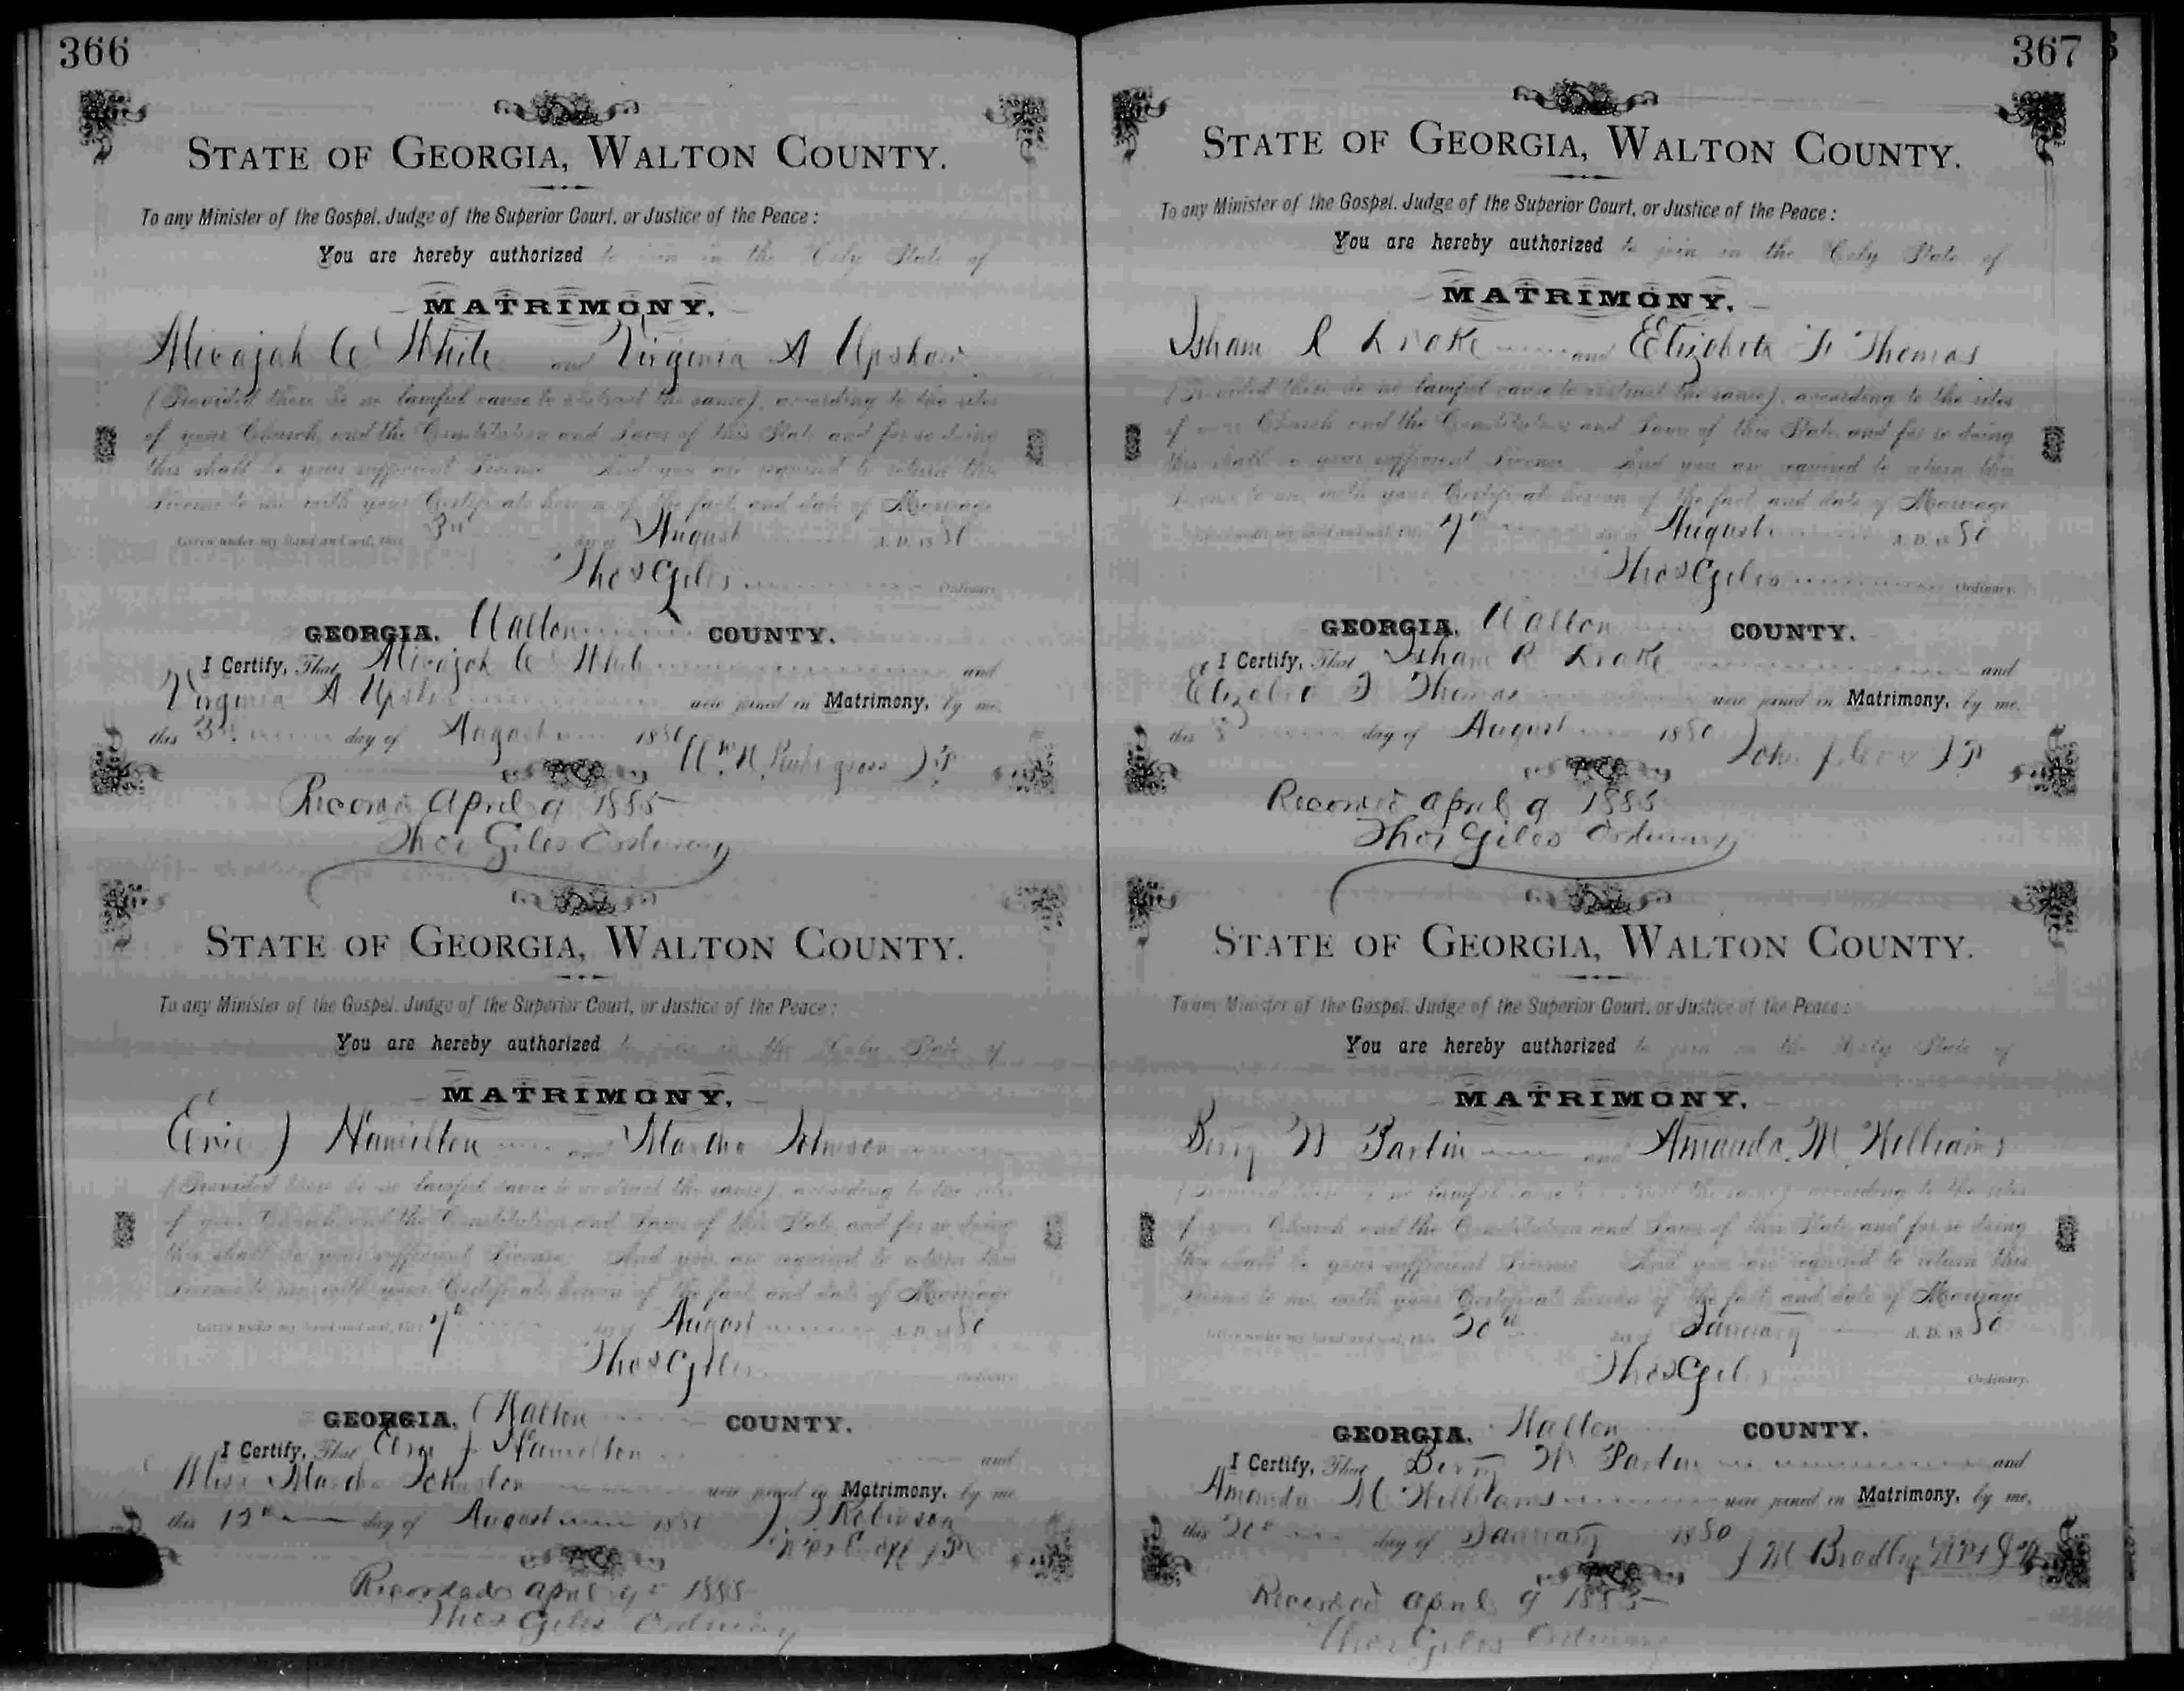 366
STATE OF GEORGIA, WALTON COUNTY.
To any Minister of the Gospel, Judge of the Superior Court, or Justice of the Peace:
You are hereby authorized to join in the Holy State of
MATRIMONY,
Micajah C White and Virginia A Upshaw
(Provided there be no lawful cause to obstruct the same), according to the rites
of your Church, and the Constitution and Laws of this State, and for so doing
this shall be your sufficient License. And you are required to return this
License to me with your Certificate hereon of the fact and date of Marriage
Given under my hand and seal, this 3rd day of August A. D. 1880
Thos Giles Ordinary.
GEORGIA, Walton COUNTY.
I Certify, That Micajah C White and
Virginia A Upshaw were joined in Matrimony, by me,
this 3rd day of August 1880
Wm H J P
Recorded April 9 1885
Thos Giles Ordinary
STATE OF GEORGIA, WALTON COUNTY.
To any Minister of the Gospel, Judge of the Superior Court, or Justice of the Peace:
You are hereby authorized to join in the Holy State of
MATRIMONY,
J Hamilton and Martha Johnson
(Provided there be no lawful cause to obstruct the same), according to the rites
of your Church, and the Constitution and Laws of this State, and for so doing
this shall be your sufficient License. And you are required to return this
License to me with your Certificate hereon of the fact and date of Marriage
Given under my hand and seal, this 7th day of August A. D. 1880
Thos Giles Ordinary.
GEORGIA, Walton COUNTY.
I Certify, That J Hamilton and
Miss Martha Johnston were joined in Matrimony, by me
this 12th day of August 1880 Robinson
J P
Recorded April 9th 1885
Thos Giles Ordinary
367
STATE OF GEORGIA, WALTON COUNTY.
To any Minister of the Gospel, Judge of the Superior Court, or Justice of the Peace:
You are hereby authorized to join in the Holy State of
MATRIMONY,
Isham R Drake and Elizabeth F Thomas
(Provided there be no lawful cause to obstruct the same), according to the rites
of your Church and the Constitution and Laws of this State, and for so doing
this shall be your sufficient License. And you are required to return this
License to me with your Certificate hereon of the fact and date of Marriage
Given under my hand and seal, this 7th day of August A. D. 1880
Thos Giles Ordinary.
GEORGIA, Walton COUNTY.
I Certify, That Isham R Drake and
Elizabeth F Thomas were joined in Matrimony, by me,
this 8 day of August 1880 John J P
Recorded April 9 1885
Thos Giles Ordinary
STATE OF GEORGIA, WALTON COUNTY.
To any Minister of the Gospel, Judge of the Superior Court, or Justice of the Peace:
You are hereby authorized to join in the Holy State of
MATRIMONY,
Berry W Partin and Amanda M Williams
(Provided there be no lawful cause to obstruct the same), according to the rites
of your Church and the Constitution and Laws of this State, and for so doing
this shall be your sufficient License. And you are required to return this
License to me with your Certificate hereon of the fact and date of Marriage
Given under my hand and seal, this 20th day of January A. D. 1880
Thos Giles Ordinary.
GEORGIA, Walton COUNTY.
I Certify, That Berry W Partin and
Amanda M Williams were joined in Matrimony, by me,
this 20th day of January 1880 J M Bradley
Recorded April 9 1885
Thos Giles Ordinary